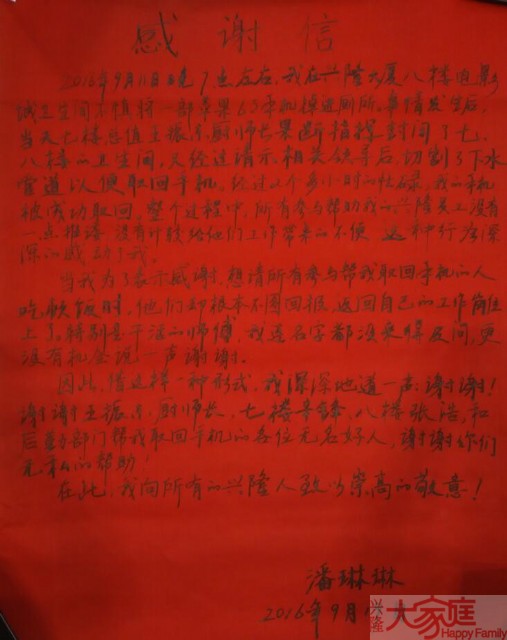 感谢信
2016年9月11日晚7点左右,我在兴隆大厦八楼电影
城卫生间不慎将一部苹果6S手机掉进厕所。事情发生后,
当天七楼总值王振东厨师长果断指挥封闭了七、
八楼的卫生间,又经过请示相关领导后,切割了下水
管道以便取回手机。经过2个多小时的忙碌,我的手机
被成功取回。整个过程中,所有参与帮助我的兴隆员工没有
一点推诿 没有计较给他们工作带来的不便 这种行为深
深的感动了我。
当我为了表示感谢,想请所有参与帮我取回手机的人
吃顿饭时,他们却根本不图回报,返回自己的工作岗位
上了,特别是干活的师傅,我连名字都没来得及问,更
没有机会说一声谢谢。
因此,借这样一种形式,我深深地道一声:谢谢!
谢谢王振东,厨师长,七楼 锋,八楼张浩,和
后勤部门帮我取回手机的各位无名好人,谢谢你们
无私的帮助!
在此,我向所有的兴隆人致以崇高的敬意!
潘琳琳
2016年9月1
兴隆
大家庭
Happy Family